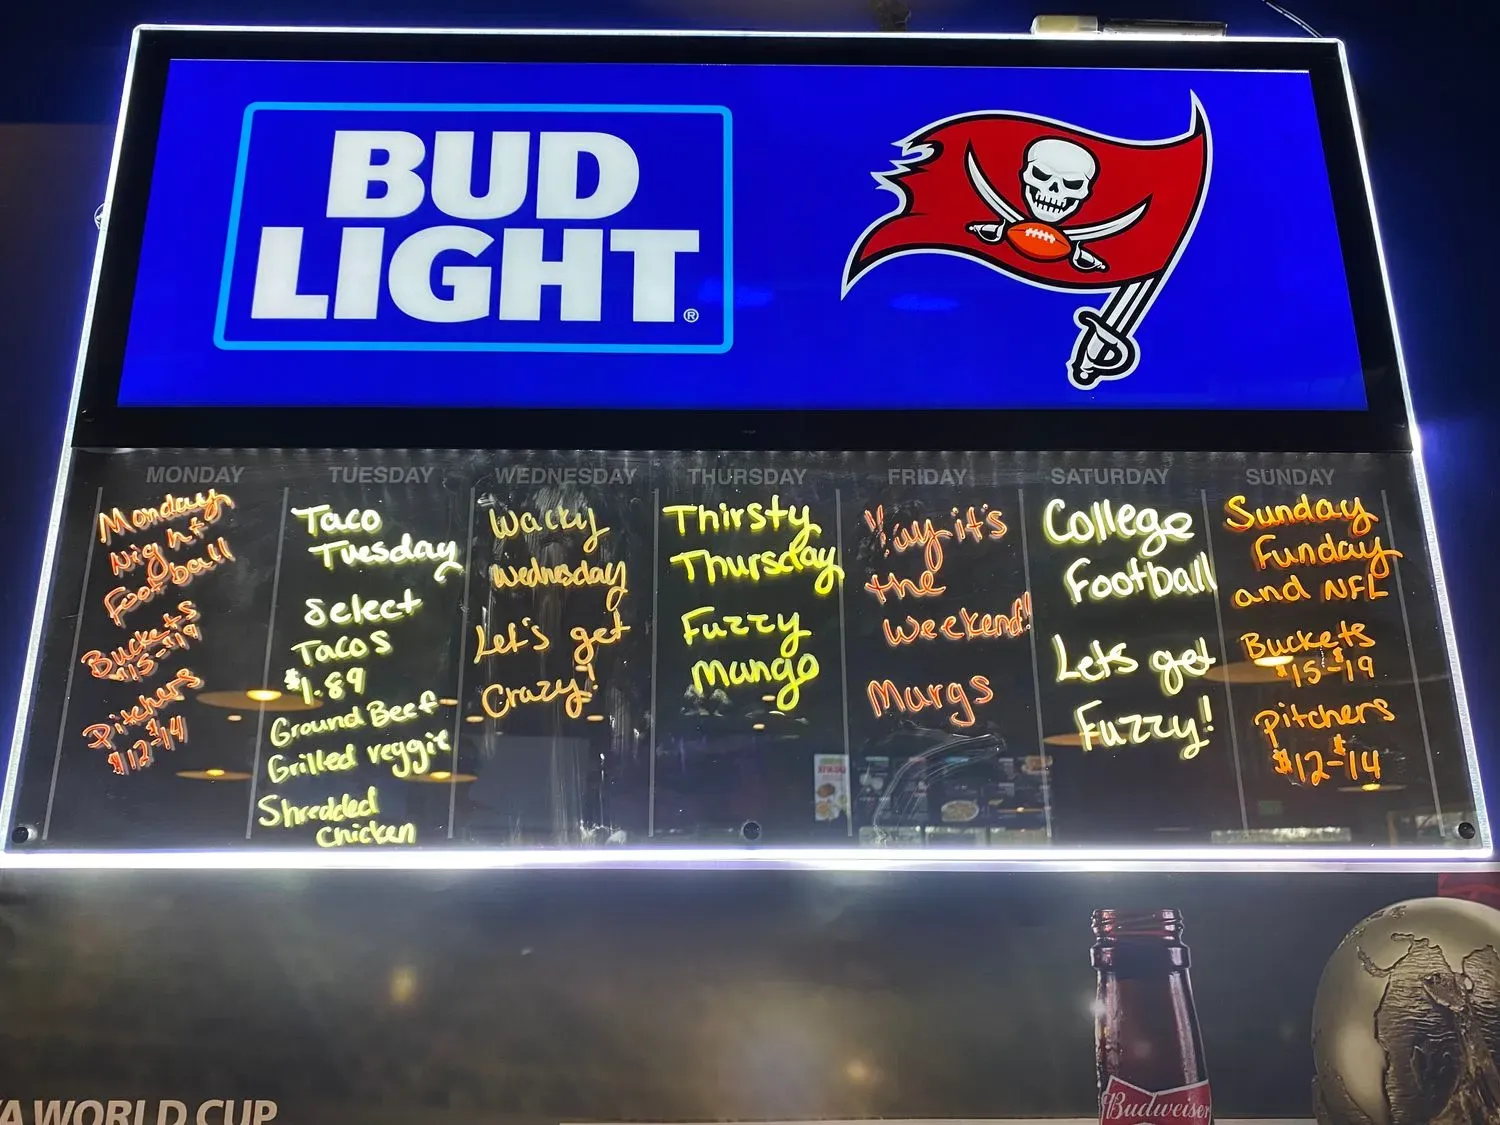 BUD
LIGHT®
MONDAY
Monday
Night
Football
Buckets
$15-$19
Pitchers
$12-$14
TUESDAY
Taco
Tuesday
Select
Tacos
$1.89
Ground Beef
Grilled veggie
Shredded
Chicken
WEDNESDAY
Wacky
Wednesday
Let's get
Crazy!
THURSDAY
Thirsty
Thursday
Fuzzy
Mango
FRIDAY
Yay it's
the
Weekend!
Margs
SATURDAY
College
Football
Lets get
Fuzzy!
SUNDAY
Sunday
Funday
and NFL
Buckets
$15-$19
Pitchers
$12-$14
A WORLD CUP
Budweiser